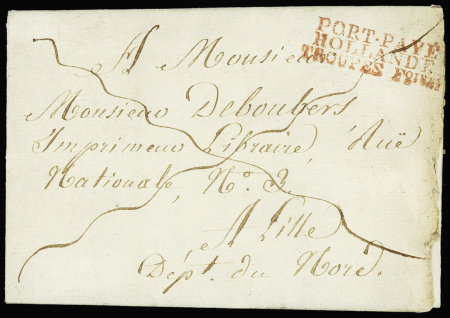 PORT-PAYÉ
HOLLANDE
TROUPES Fçises
A Monsieur
Monsieur Deboubers
Imprimeur Libraire, Ruë
Nationale, No. 3.
A Lille
Dépt. du Nord.